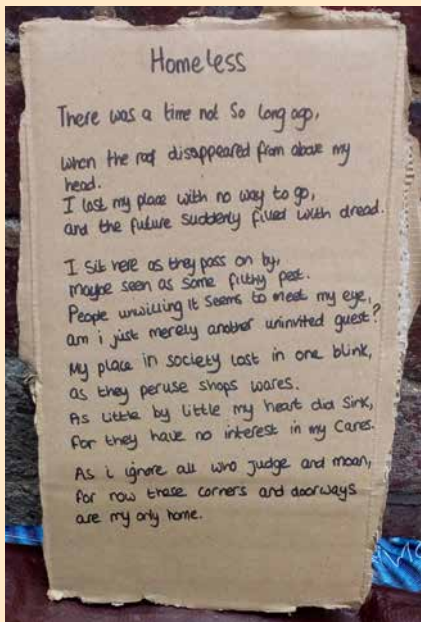 Homeless
There was a time not so long ago,
when the roof disappeared from above my
head.
I lost my place with no way to go,
and the future suddenly filled with dread.
I sit here as they pass on by,
maybe seen as some filthy pest.
People unwilling it seems to meet my eye,
am i just merely another uninvited guest?
My place in society lost in one blink,
as they peruse shops wares.
As little by little my heart did sink,
for they have no interest in my cares.
As i ignore all who judge and moan,
for now these corners and doorways
are my only home.